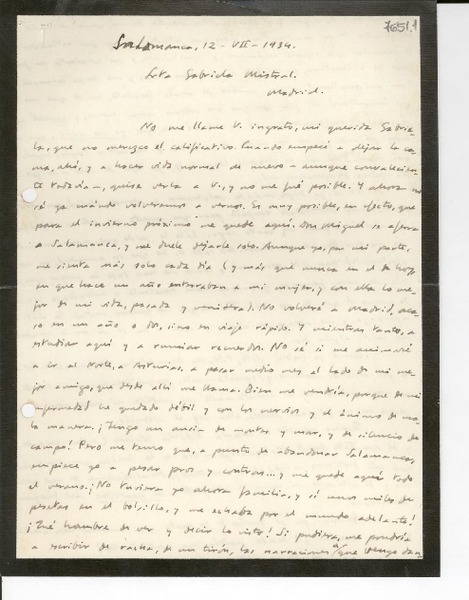 7651.1
Salamanca, 12-VII-1934.
Srta Gabriela Mistral.
Madrid.
No me llame V. ingrato, mi querida Gabrie-
la, que no merezco el calificativo. Cuando empecé a dejar la ca-
ma, ahí, y a hacer vida normal de nuevo - aunque convalecien-
te todavía -, quise verla a V., y no me fué posible. Y ahora no
sé ya cuándo volveremos a vernos. Es muy posible, en efecto, que
para el invierno próximo me quede aquí. Don Miguel se aferra
a Salamanca, y me duele dejarle solo. Aunque yo, por mi parte,
me sienta más solo cada día (y más que nunca en el de hoy,
en que hace un año enterraban a mi mujer, y con ella lo me-
jor de mi vida, pasada y venidera). No volveré a Madrid, aca-
so en un año o dos, sino en viaje rápido. Y mientras tanto, a
estudiar aquí y a rumiar recuerdos. No sé si me animaré
a ir al Norte, a Asturias, a pasar medio mes al lado de mi me-
jor amigo, que desde allí me llama. Bien me vendría, porque de mi
enfermedad he quedado débil y con los nervios y el ánimo de ma-
la manera. ¡Tengo un ansia de montes y mar, y de silencio de
campo! Pero me temo que, a punto de abandonar Salamanca,
empiece yo a pesar pros y contras... y me quede aquí todo
el verano. ¡No tuviera yo ahora familia, y sí unos miles de
pesetas en el bolsillo, y me echaba por el mundo adelante!
¡Qué hambre de ver y decir lo visto! Si pudiera, me pondría
a escribir de racha, de un tirón, las narraciones que vengo dan-